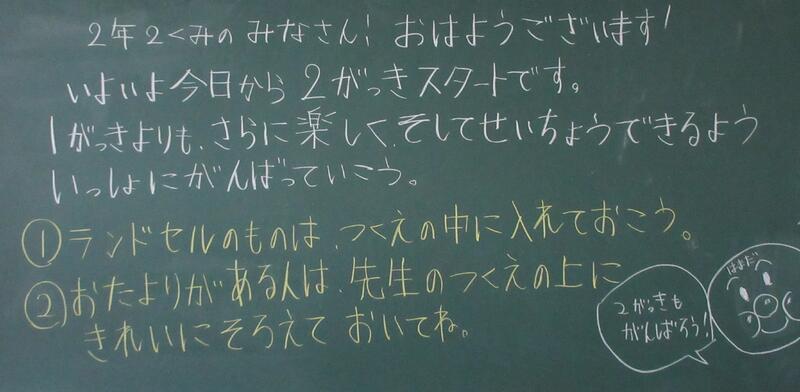 2年2くみの みなさん! おはようございます!
いよいよ今日から2がっきスタートです。
1がっきよりも、さらに楽しく、そしてせいちょうできるよう
いっしょにがんばっていこう。
①ランドセルのものは、つくえの中に入れておこう。
②おたよりがある人は、先生のつくえの上に
きれいにそろえて おいてね。
2がっきも
がんばろう!!